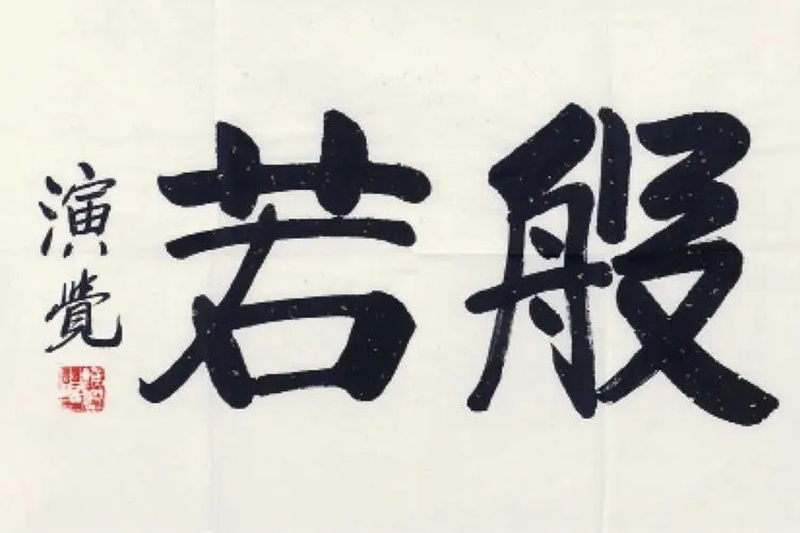 般若
演覺